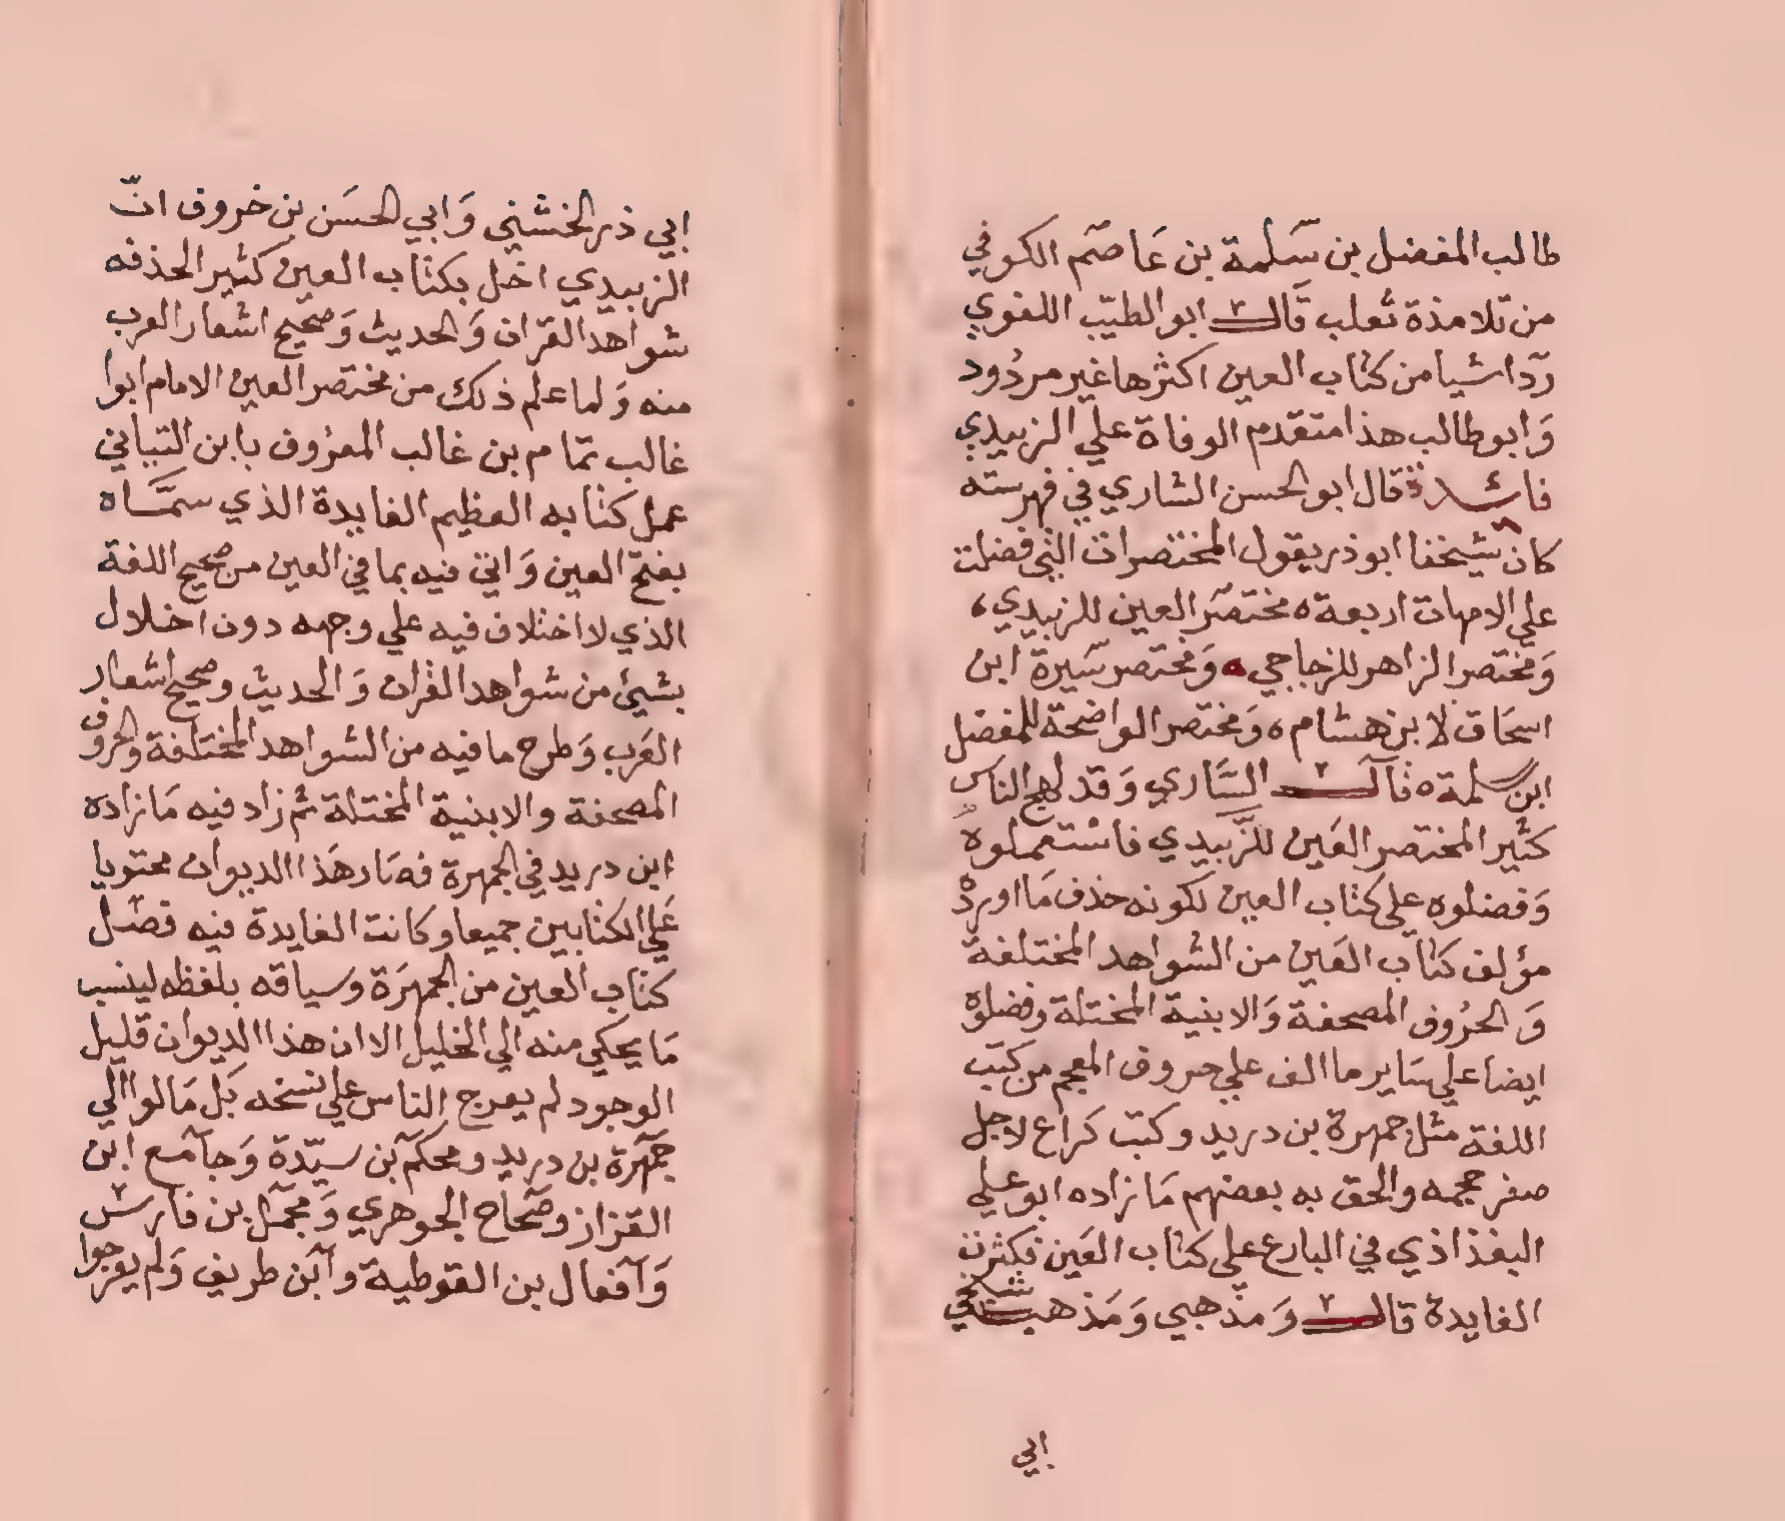 طالب المفضل بن سَلمة بن عَاصم الكوفي
من تلامذة ثعلب قال ابو الطيب اللغوي
ردّ اشيا من كتاب العين اكثرها غير مردُود
وَابو طالب هذا متقدم الوفاة علي الزبيدي
فائدة قال ابو الحسن الشاري في فهرسته
كان شيخنا ابو ذر يقول المختصرات التي فضلت
علي الامهات اربعة مختصر العين للزبيدي،
وَمختصر الزاهر للزجاجي وَمختصر سَيرة ابن
اسحَاق لابن هشام وَمختصر الواضحة للمفضل
ابن سلمة قال الشَاري وَقد لهج الناس
كثير المختصر العَين للزَّبيدي فاستعملوه
وَفضلوه علي كتاب العين لكونه حذف مَا اورده
مؤلف كتاب العَين من الشواهد المختلفة
وَالحرُوف المصحفة وَالابنية المختلة وفضلوه
ايضا علي سَاير ما الف علي حروف المعجم من كتب
اللغة مثل جمهرة بن دريد وكتب كراع لاجل
صغر حجمه والحق به بعضهم مَا زاده ابو علي
البغذاذي في البارع علي كتاب العَين فكثرت
الفايدة قال وَمذهبي وَمَذهب شيخي
ابي
ابي ذر الخشني وَابي الحسَن بن خروف انّ
الزبيدي اخل بكتاب العين كثير الحذفه
شواهد القران وَالحديث وَصحيح اشعار العرب
منه وَلما علم ذلك من مختصر العين الامام ابوا
غالب تمام بن غالب المعرُوف بابن التياني
عمل كتابه العظيم الفايدة الذي سمَّاه
بفتح العين وَاتي فيه بما في العين من صحيح اللغة
الذي لا اختلاف فيه علي وجهه دون اخلال
بشيئ من شواهد القران وَالحديث وصحيح اشعار
العَرب وَطرح ما فيه من الشواهد المختلفة والحروف
المصحفة والابنية المختلة ثم زاد فيه مَا زاده
ابن دريد في الجمهرة فصَار هَذا الديوان محتويا
عَلي الكتابين جميعا وكانت الفايدة فيه فصَل
كتاب العين من الجمهرَة وسياقه بلفظه لينسب
مَا يحكي منه الي الخليل الا ان هذا الديوان قليل
الوجود لم يعرج الناس علي نسخه بَل مَالوا الي
جمهرة بن دريد ومحكم بن سيّدة وَجامع ابن
القزاز وصَحاح الجوهري وَمجمَل بن فارس
وَافعال بن القوطية وابن طريف وَلم يعرجوا